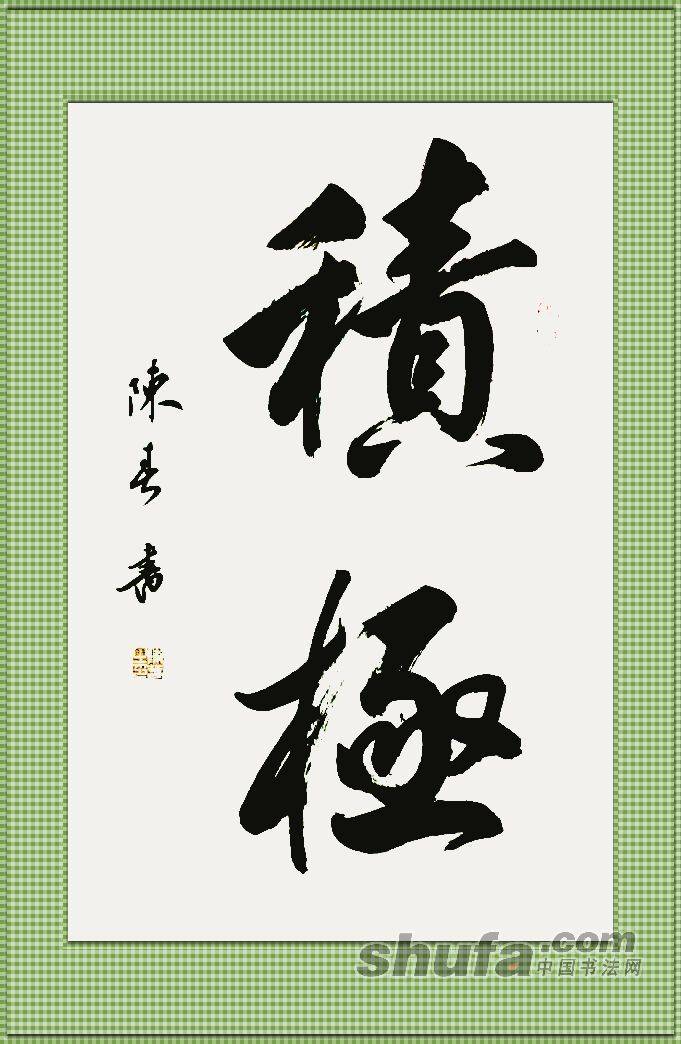 積極
陳春書
shufa.com
中国书法网